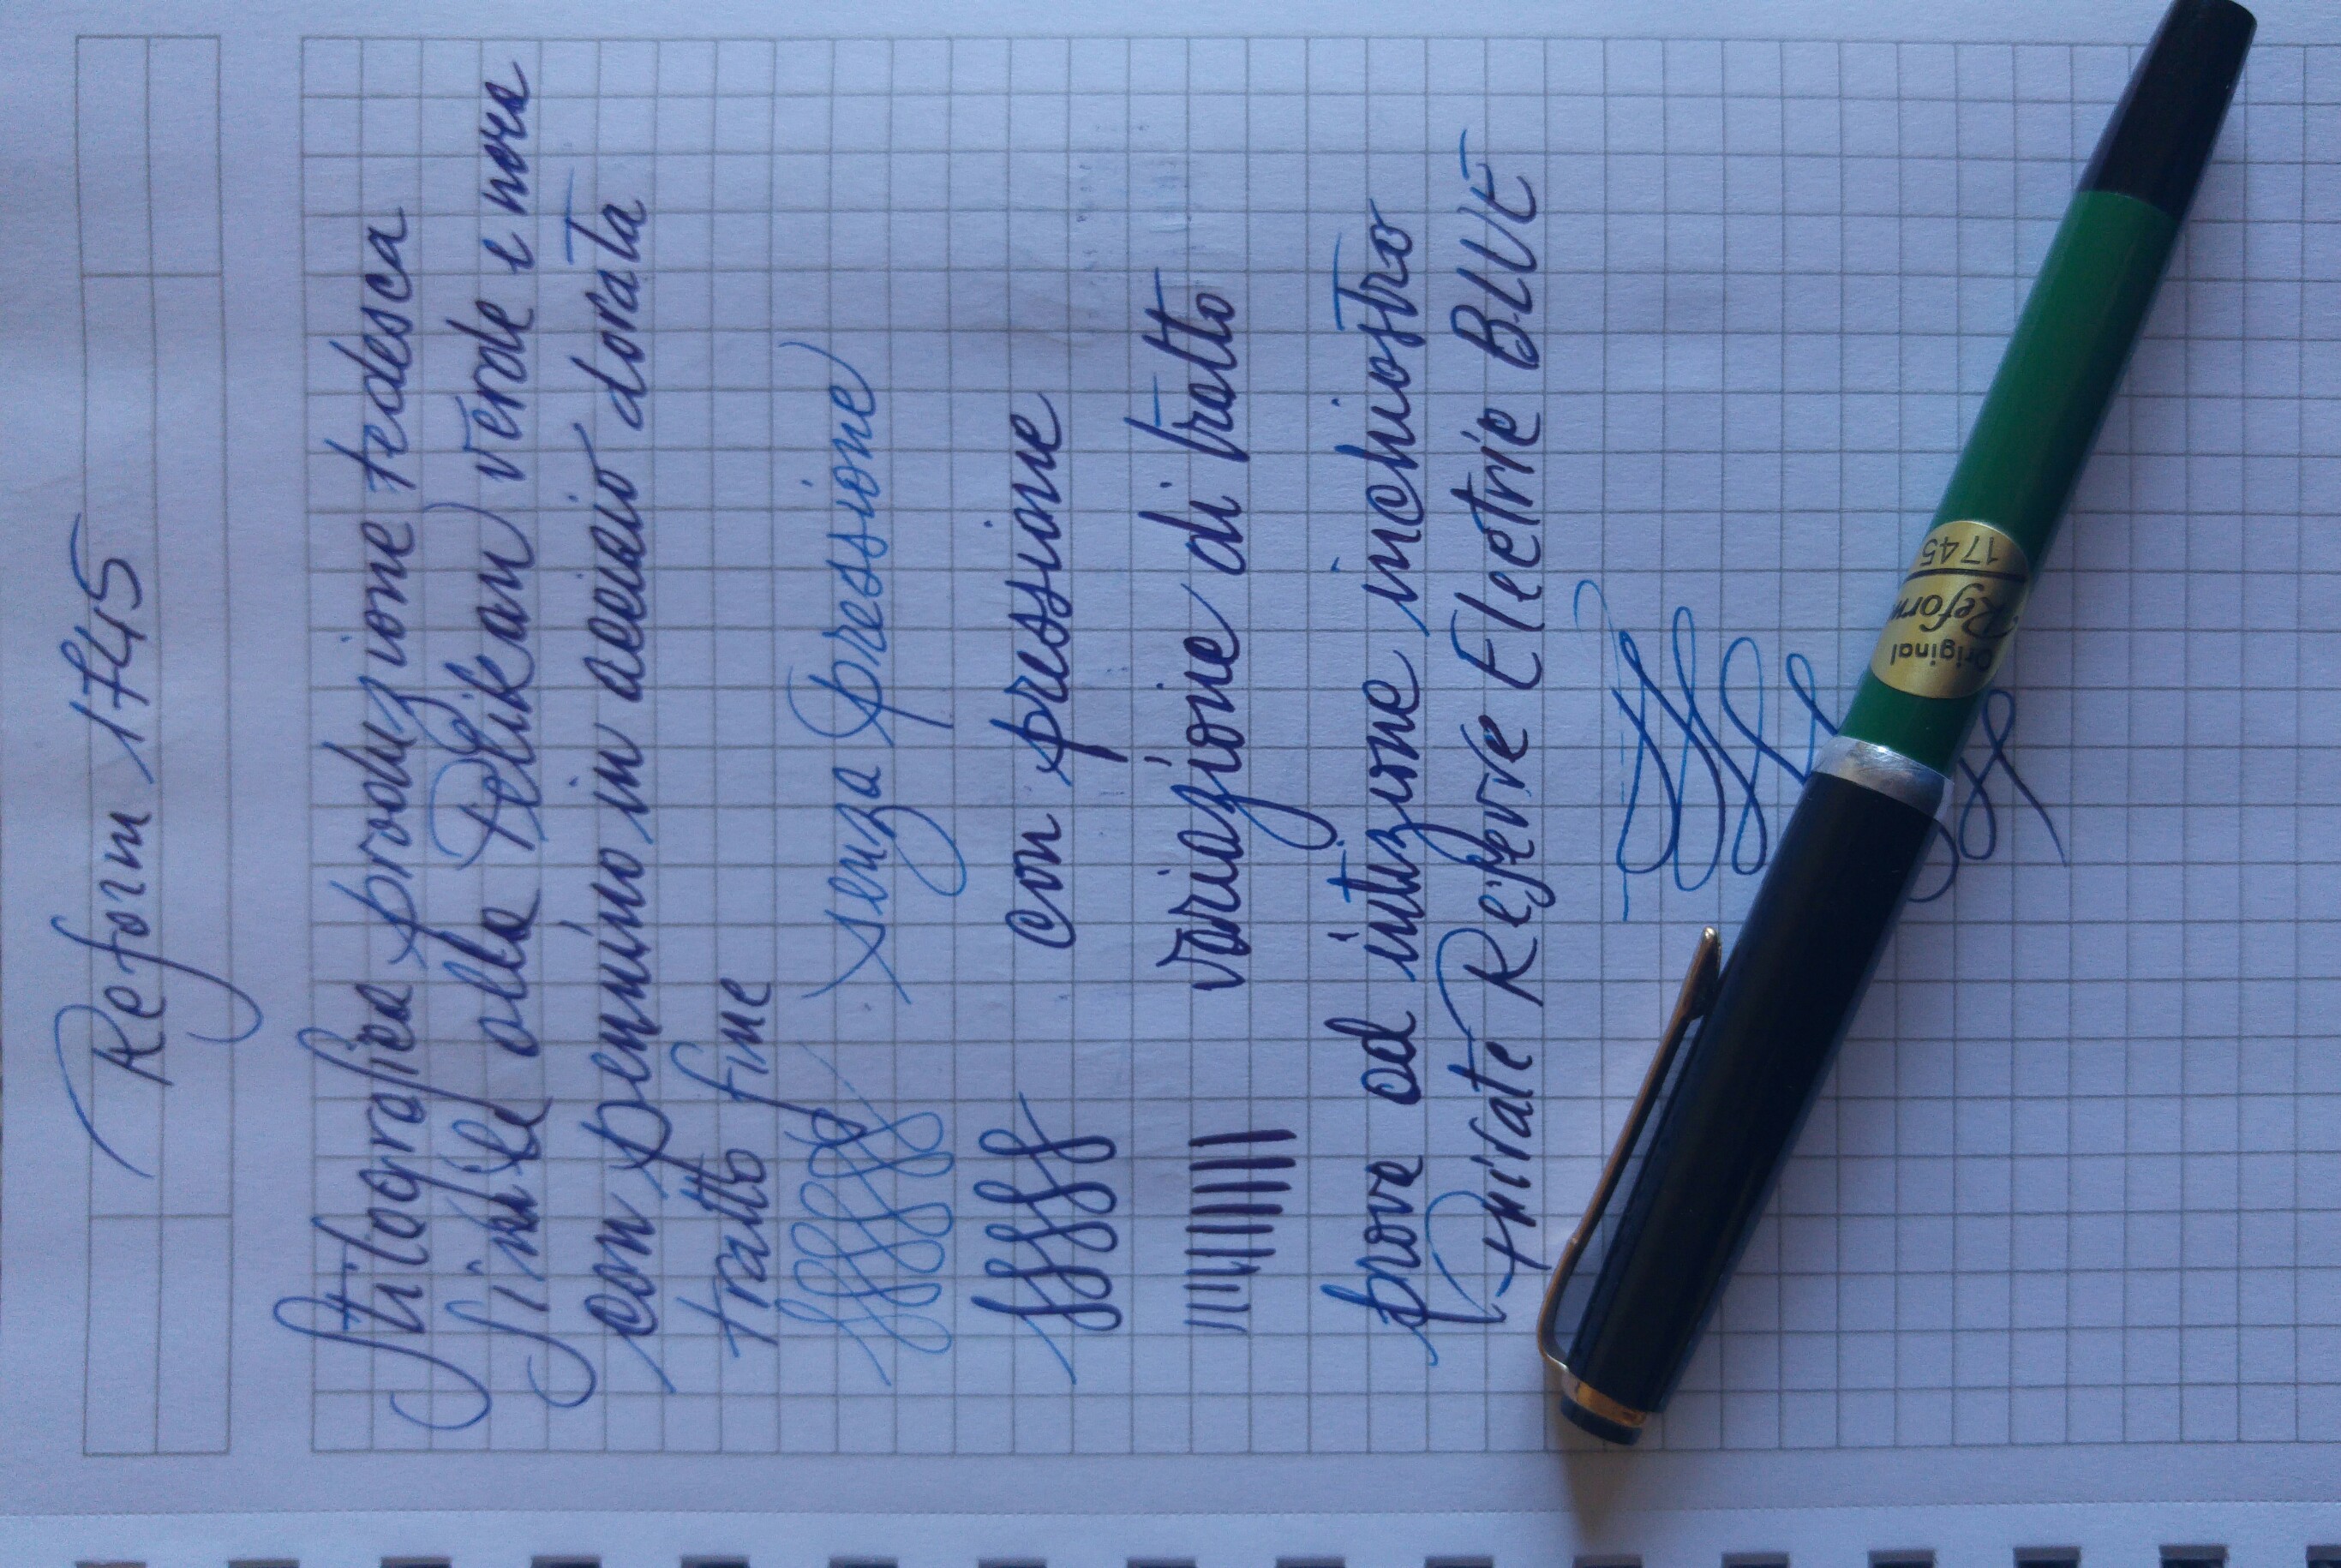 Reform 1745
Stilografica produzione tedesca
simile alla Pelikan verde e nera
con pennino in acciaio dorata
tratto fine
senza pressione
con pressione
variazione di tratto
prova ad intuzione inchiostro
Private Reserve Electric BLUE
Original
Reform
1745